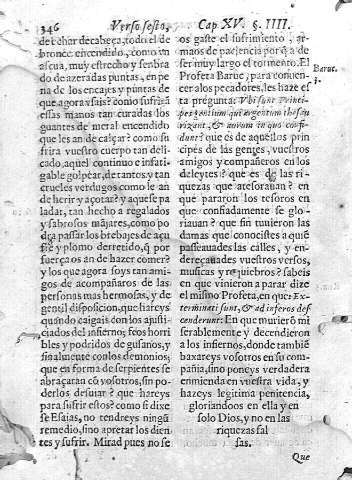 346 Verso sesto, Cap. XV. §. IIII.
de echar de cabeça, todo el de
bronce encendido, como vn
ascua, muy estrecho y senbra
do de azeradas puntas, en pe
na de los encajes y puntas de
que agora vsais? como sufrirā
essas manos tan curadas los
guantes de metal encendido
que les an de calçar? como su
frira vuestro cuerpo tan deli
cado, aquel continuo e infati-
gable golpear, de tantos y tan
crueles verdugos como le an
de herir y açotar? y aquese pa
ladar, tan hecho a regalados
y sabrosos mājares, como po
dra passar los brebajes de açu
fre y plomo derretido, q̄ por
fuerça os an de hazer comer?
y los que agora soys tan ami-
gos de acompañaros de las
personas mas hermosas, y de
gentil disposicion, que hareys
quando caigais con los ajusti-
ciados del infierno; feos horri
bles y podridos de gusanos, y
finalmente con los demonios;
que en forma de serpientes se
abraçatan cū vosotros, sin po-
derlos desuiar? que hareys
para sufrir estos? como si dixe
se Esaias, no tendreys ningū
remedio, sino apretar los dien
tes y sufrir. Mirad pues no se
os gaste el sufrimiento, ar-
maos de paciencia por q̄ a de
ser muy largo el tormento. El
Profeta Baruc, para conuen-
cer a los pecadores, les haze es
ta pregunta: Vbi sunt Princi-
pes gentium qui argentum thesau
rizant, & aurum in quo confi-
dunt? que es de aquellos prin
cipes de las gentes, vuestros
amigos y compañeros en los
deleytes? que es de las ri-
quezas que atesorauan? en
que pararon los tesoros en
que confiadamente se glo-
riauan? que fin tuuieron las
damas que conocistes a quiē
passeauades las calles, y en-
dereçauades vuestros versos,
musicas y requiebros? sabeis
en que vinieron a parar dize
el mismo Profeta, en que: Ex-
terminati sunt, & ad inferos def
cenderunt: En que murierō mi
serablemente y decendieron
a los infiernos, donde tambiē
baxareys vosotros en su com-
pañia, sino poneys verdadera
enmienda en vuestra vida, y
hazeys legitima penitencia,
gloriandoos en ella y en
solo Dios, y no en las
riquezas fal
sas.
Baruc.
3.
Que